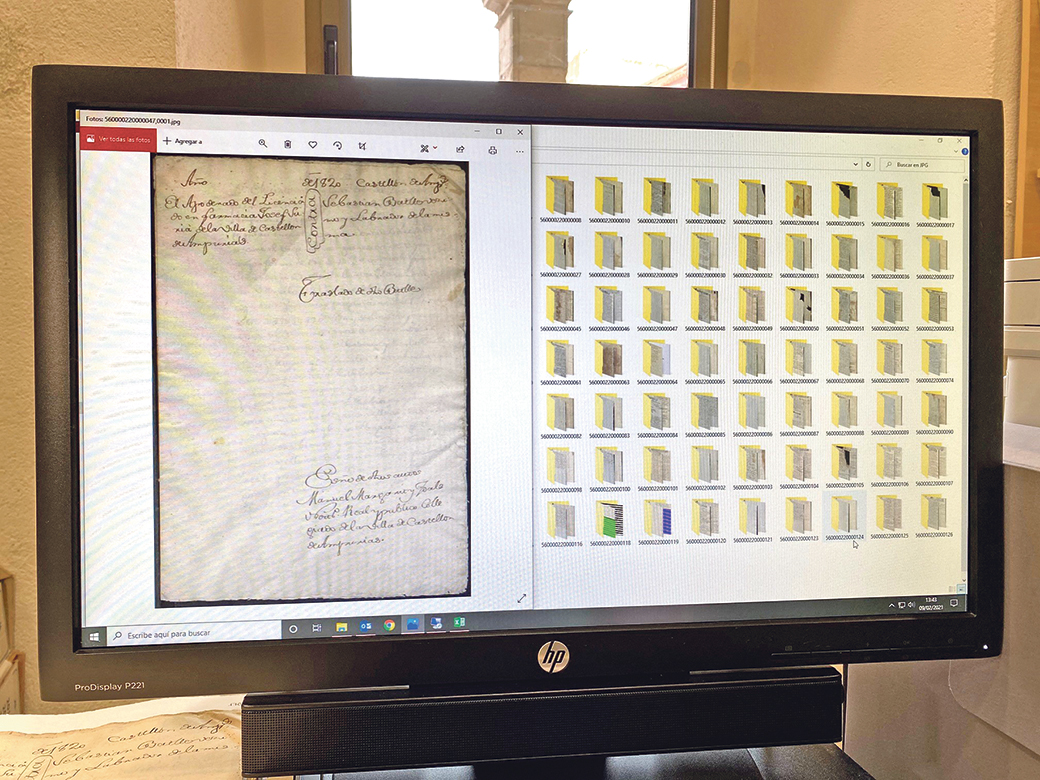 Fotos: 560000220000047,0001.jpg
Ver todas las fotos
Agregar a
Año
de 1820 Castellon de Amp.s
El Apoderado del Licencia
do en farmacia Josef
de la Villa de Castellon
de Ampurias
Contra
Sebastian Batlle
no y Labrador de la mis
ma
Traslado de dho
Manuel
Real y publico Colle
giado de la Villa de Castellon
de Ampurias.
Buscar en JPG
560000220000008 560000220000010 560000220000011 560000220000012 560000220000013 560000220000014 560000220000015 560000220000016 560000220000017
560000220000027 560000220000028 560000220000029 560000220000030 560000220000032 560000220000033 560000220000034 560000220000036 560000220000037
560000220000045 560000220000046 560000220000047 560000220000048 560000220000049 560000220000050 560000220000051 560000220000052 560000220000053
560000220000061 560000220000063 560000220000064 560000220000065 560000220000066 560000220000067 560000220000068 560000220000070 560000220000074
560000220000082 560000220000083 560000220000084 560000220000085 560000220000086 560000220000087 560000220000088 560000220000089 560000220000090
560000220000098 560000220000100 560000220000101 560000220000102 560000220000103 560000220000104 560000220000105 560000220000106 560000220000107
560000220000116 560000220000118 560000220000119 560000220000120 560000220000121 560000220000123 560000220000124 560000220000125 560000220000126
Escribe aquí para buscar
13:43
09/02/2021
hp
ProDisplay P221
de 1820 Castellon de Amp.s
Sebastian Batlle
no y Labrador de la mis